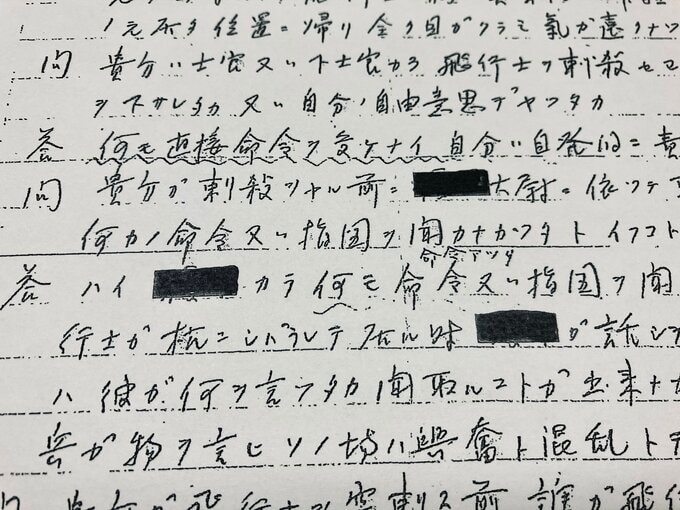 ノ元所ノ位置ニ帰リ全ク目ガクラミ氣ガ遠クナツ
問 貴方ハ士官又ハ下士官カラ飛行士ヲ刺殺セヨ
ヲ下サレタカ又ハ自分ノ自由意思デヤツタカ
答 何モ直接命令ヲ受ケナイ自分ハ自発的ニ責
問 貴方ガ刺殺シタル前ニ 大尉ニ依ツテ
何カノ命令又ハ指図ヲ聞カナカツタトイフコト
命令アツタ
答 ハイ カラ何モ命令又ハ指図ヲ聞
行士ガ杭ニシバラレテ居ル時 ガ話シ
ハ彼ガ何ヲ言ツタカ聞取ルコトガ出来ナカ
皆ガ物ヲ言ヒソノ場ハ興奮ト混乱トデ
ガ飛行士ヲ突刺ス前誰ガ飛行